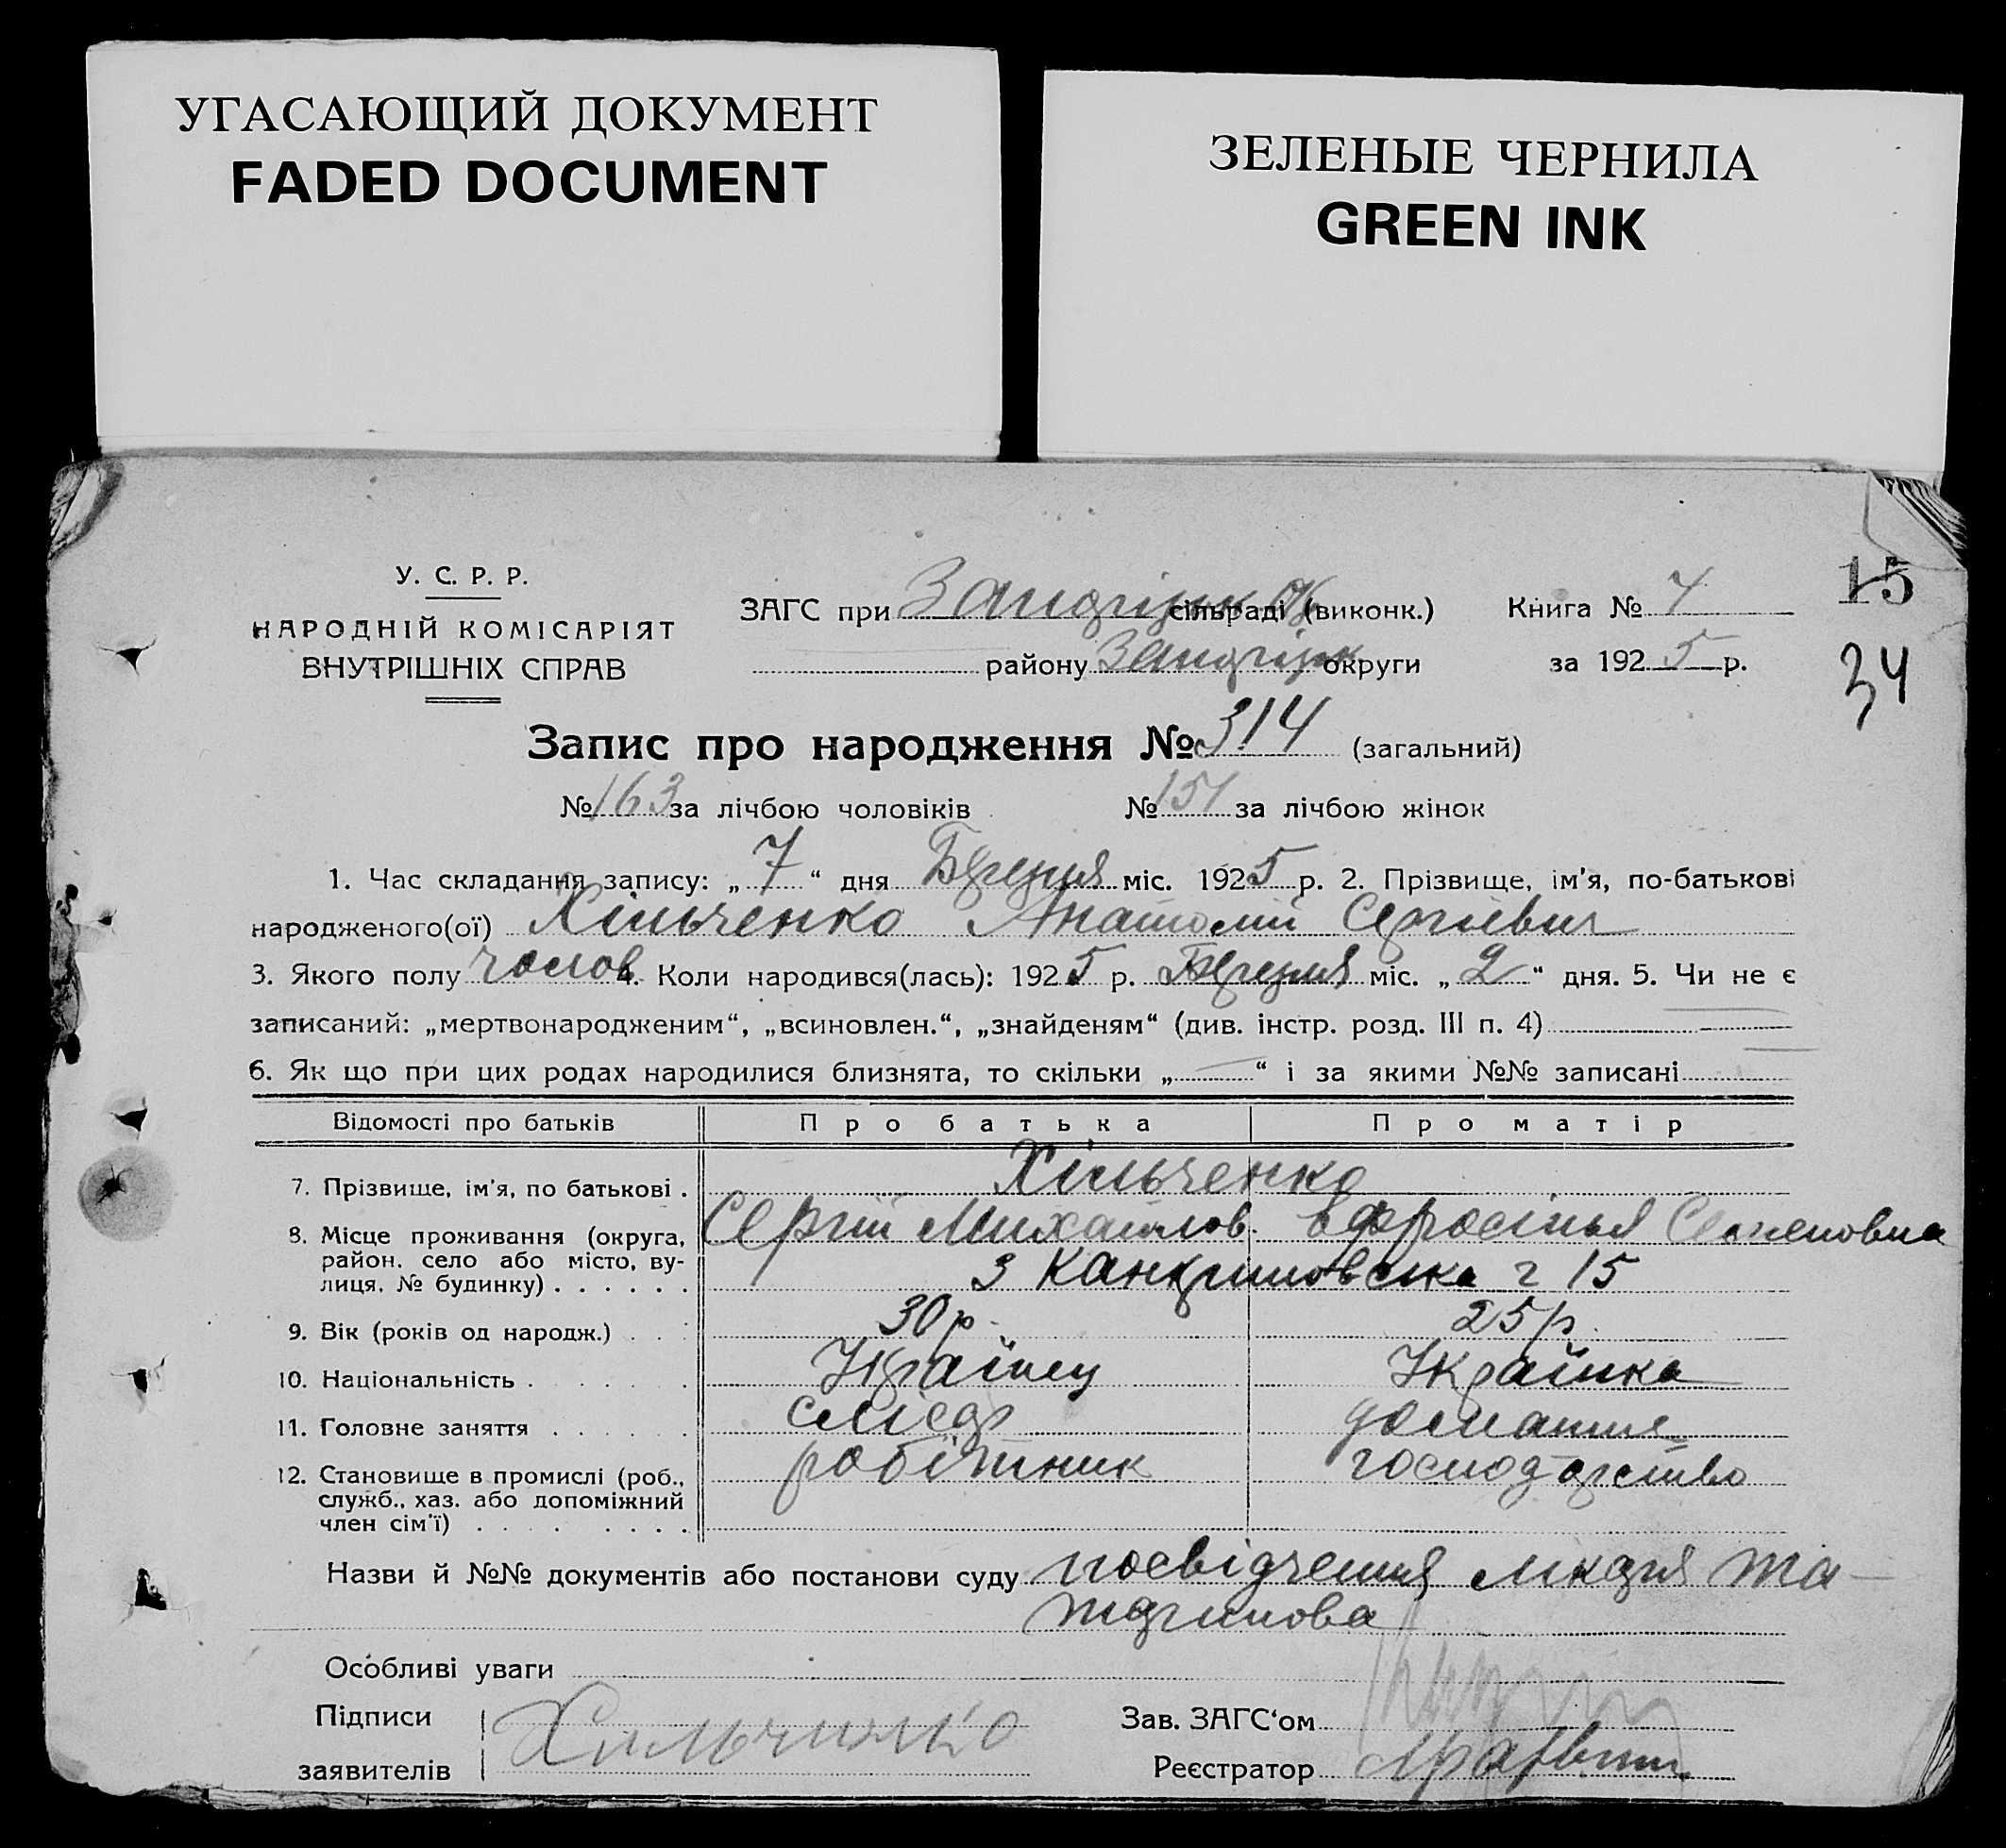 УГАСАЮЩИЙ ДОКУМЕНТ
FADED DOCUMENT
ЗЕЛЕНЫЕ ЧЕРНИЛА
GREEN INK
У. С. Р. Р.
НАРОДНІЙ КОМІСАРІЯТ
ВНУТРІШНІХ СПРАВ
ЗАГС при сільраді (виконк.)
району округи
Книга № 4
за 1925 р.
15
34
Запис про народження № 314 (загальний)
№ 163 за лічбою чоловіків № 151 за лічбою жінок
1. Час складання запису: „ 7 “ дня Березня міс. 1925 р. 2. Прізвище, ім'я, по-батькові
народженого(ої) Хільченко Анатолій Сергієвич
3. Якого полу чолов 4. Коли народився(лась): 1925 р. Березня міс. „ 2 “ дня. 5. Чи не є
записаний: „мертвонародженим“, „всиновлен.“, „знайденям“ (див. інстр. розд. III п. 4)
6. Як що при цих родах народилися близнята, то скільки „ — “ і за якими №№ записані
Відомості про батьків Про батька Про матір
7. Прізвище, ім'я, по батькові . Хільченко
8. Місце проживання (округа, Сергій Михайлов. Єфросінья Семеновна
район. село або місто, ву-
лиця, № будинку) . . . . . . 15
9. Вік (років од народж.) . . . 30 р. 25 р.
10. Національність . . . . . Українец Українка
11. Головне заняття . . . . . . слюсар домашнє
12. Становище в промислі (роб., робітник господарство
служб., хаз. або допоміжний
член сім'ї) . . . . . . . .
Назви й №№ документів або постанови суду посвідчення лікаря та-
Особливі уваги
Підписи
заявителів Хильченко
Зав. ЗАГС‘ом
Реєстратор